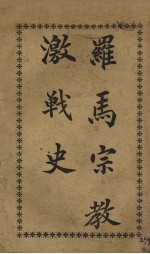 羅馬宗教
激戦史